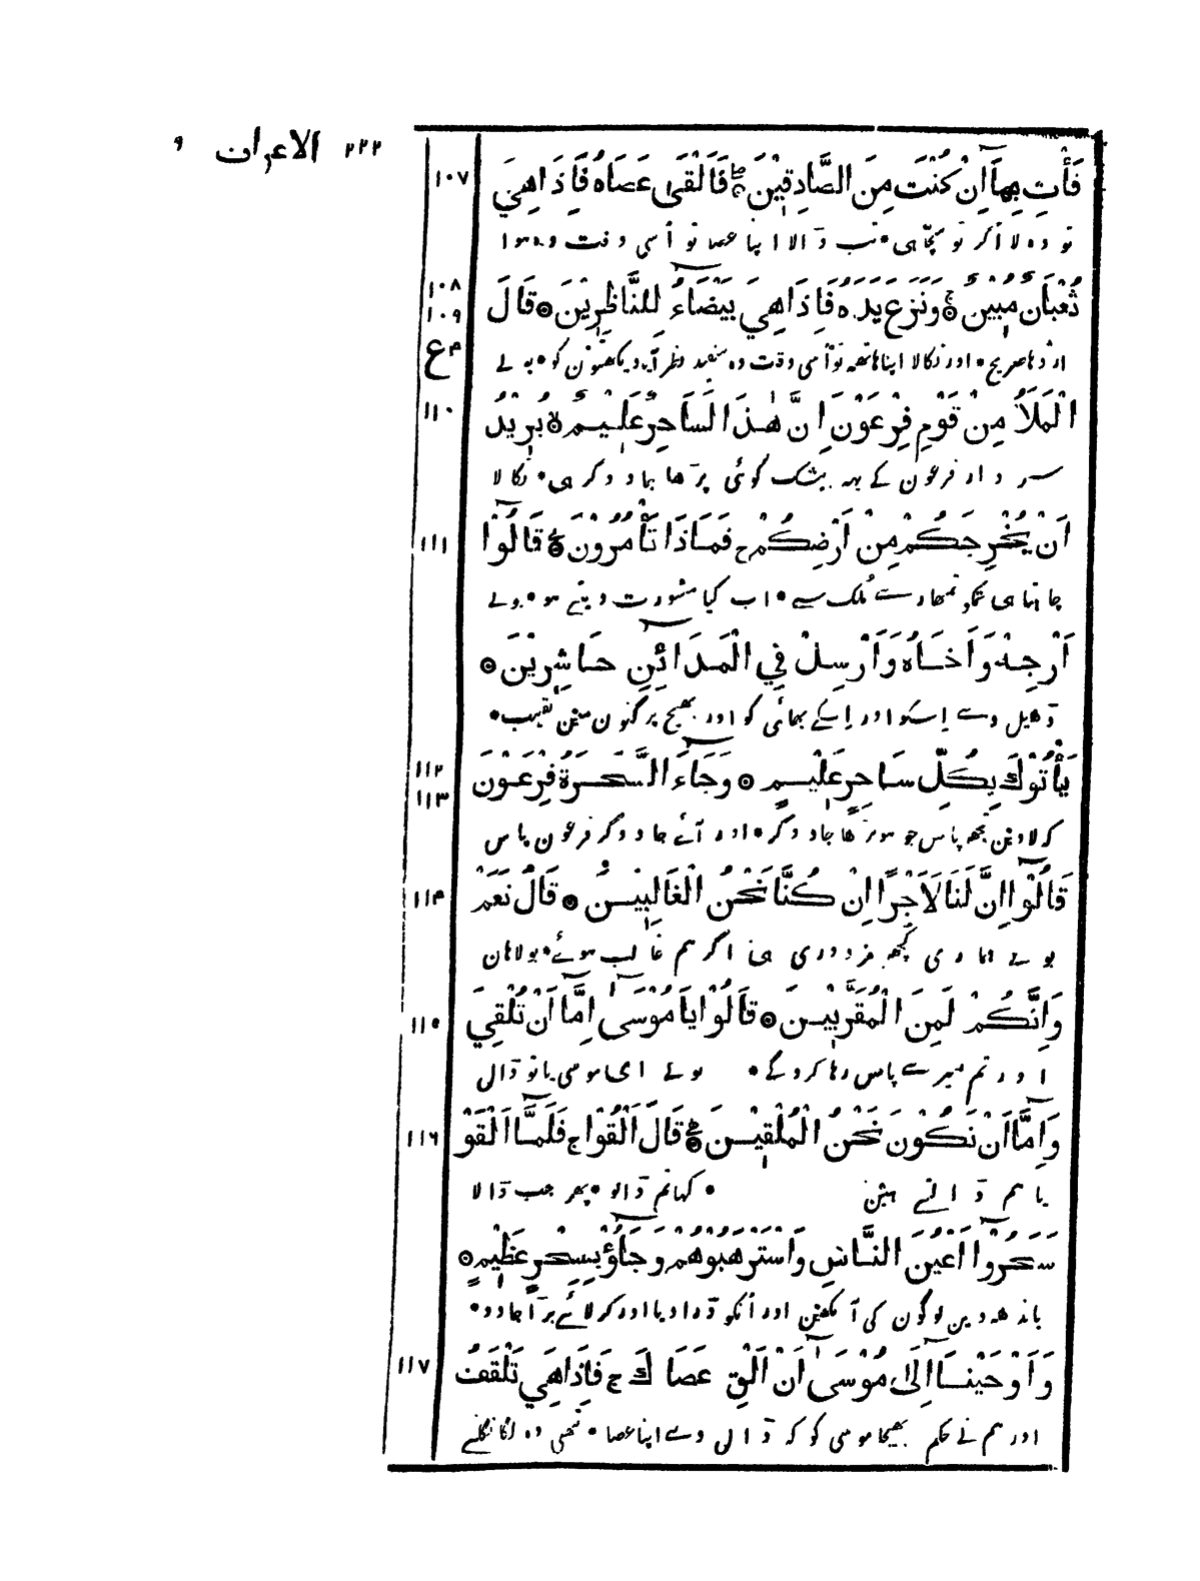 ٢٢٢ الاعراف ٩
فَأْتِ بِهَآ اِنْ كُنْتَ مِنَ الصَّادِقِيْنَ فَاَلْقَى عَصَاهُ فَاِذَا هِيَ ١٠٧
تو وہ لا اگر تو سچّا ہی • تب ڈالا اپنا عصا تو اُسی وقت وہ ہوا
ثُعْبَانٌ مُّبِيْنٌ وَنَزَعَ يَدَهُ فَاِذَا هِيَ بَيْضَآءُ لِلنَّاظِرِيْنَ قَالَ ١٠٨ ١٠٩
اژدہا صریح • اور نکالا اپنا ہاتھہ تو اُسی وقت وہ سفید نظر آیا دیکھتوں کو • بولے ع
الْمَلَاُ مِنْ قَوْمِ فِرْعَوْنَ اِنَّ هٰذَا لَسَاحِرٌ عَلِيْمٌ يُرِيْدُ ١١٠
سردار فرعون کے یہہ بیشک کوئی پڑھا جادوگر ہی • نکالا
اَنْ يُخْرِجَكُمْ مِنْ اَرْضِكُمْ ج فَمَاذَا تَأْمُرُوْنَ قَالُوْٓا ١١١
چاہتا ہی تمکو تمھارے مُلک سے • اب کیا مشورت دیتے ہو • بولے
اَرْجِهْ وَاَخَاهُ وَاَرْسِلْ فِي الْمَدَآئِنِ حَاشِرِيْنَ
ڈھیل دے اِسکو اور اِسکے بھائی کو اور بھیج پرگنوں میں نقیب •
يَأْتُوْكَ بِكُلِّ سَاحِرٍ عَلِيْمٍ وَجَآءَ السَّحَرَةُ فِرْعَوْنَ ١١٢ ١١٣
کہ لاویں تجھہ پاس جو ہو پڑھا جادوگر • اور آئے جادوگر فرعون پاس
قَالُوْٓا اِنَّ لَنَا لَاَجْرًا اِنْ كُنَّا نَحْنُ الْغَالِبِيْنَ قَالَ نَعَمْ ١١٤
بولے ہماری کچھہ مزدوری ہی اگر ہم غالب ہوئے • بولا ہاں
وَاِنَّكُمْ لَمِنَ الْمُقَرَّبِيْنَ قَالُوْا يَا مُوْسَىٓ اِمَّآ اَنْ تُلْقِيَ ١١٥
اور تم میرے پاس رہا کروگے • بولے ای موسی یا تو ڈال
وَاِمَّآ اَنْ نَكُوْنَ نَحْنُ الْمُلْقِيْنَ قَالَ اَلْقُوْا ج فَلَمَّآ اَلْقَوْ ١١٦
یا ہم ڈالتے ہیں • کہا تم ڈالو • پھر جب ڈالا
سَحَرُوْٓا اَعْيُنَ النَّاسِ وَاسْتَرْهَبُوْهُمْ وَجَآؤُ بِسِحْرٍ عَظِيْمٍ
باندھہ دین لوگوں کی آنکھیں اور اُنکو ڈرا دیا اور کر لائے بڑا جادو •
وَاَوْحَيْنَآ اِلَىٰ مُوْسَىٓ اَنْ اَلْقِ عَصَاكَ ج فَاِذَا هِيَ تَلْقَفُ ١١٧
اور ہم نے حکم بھیجا موسی کو کہ ڈال دے اپنا عصا • تبھی وہ لگا نگلنے